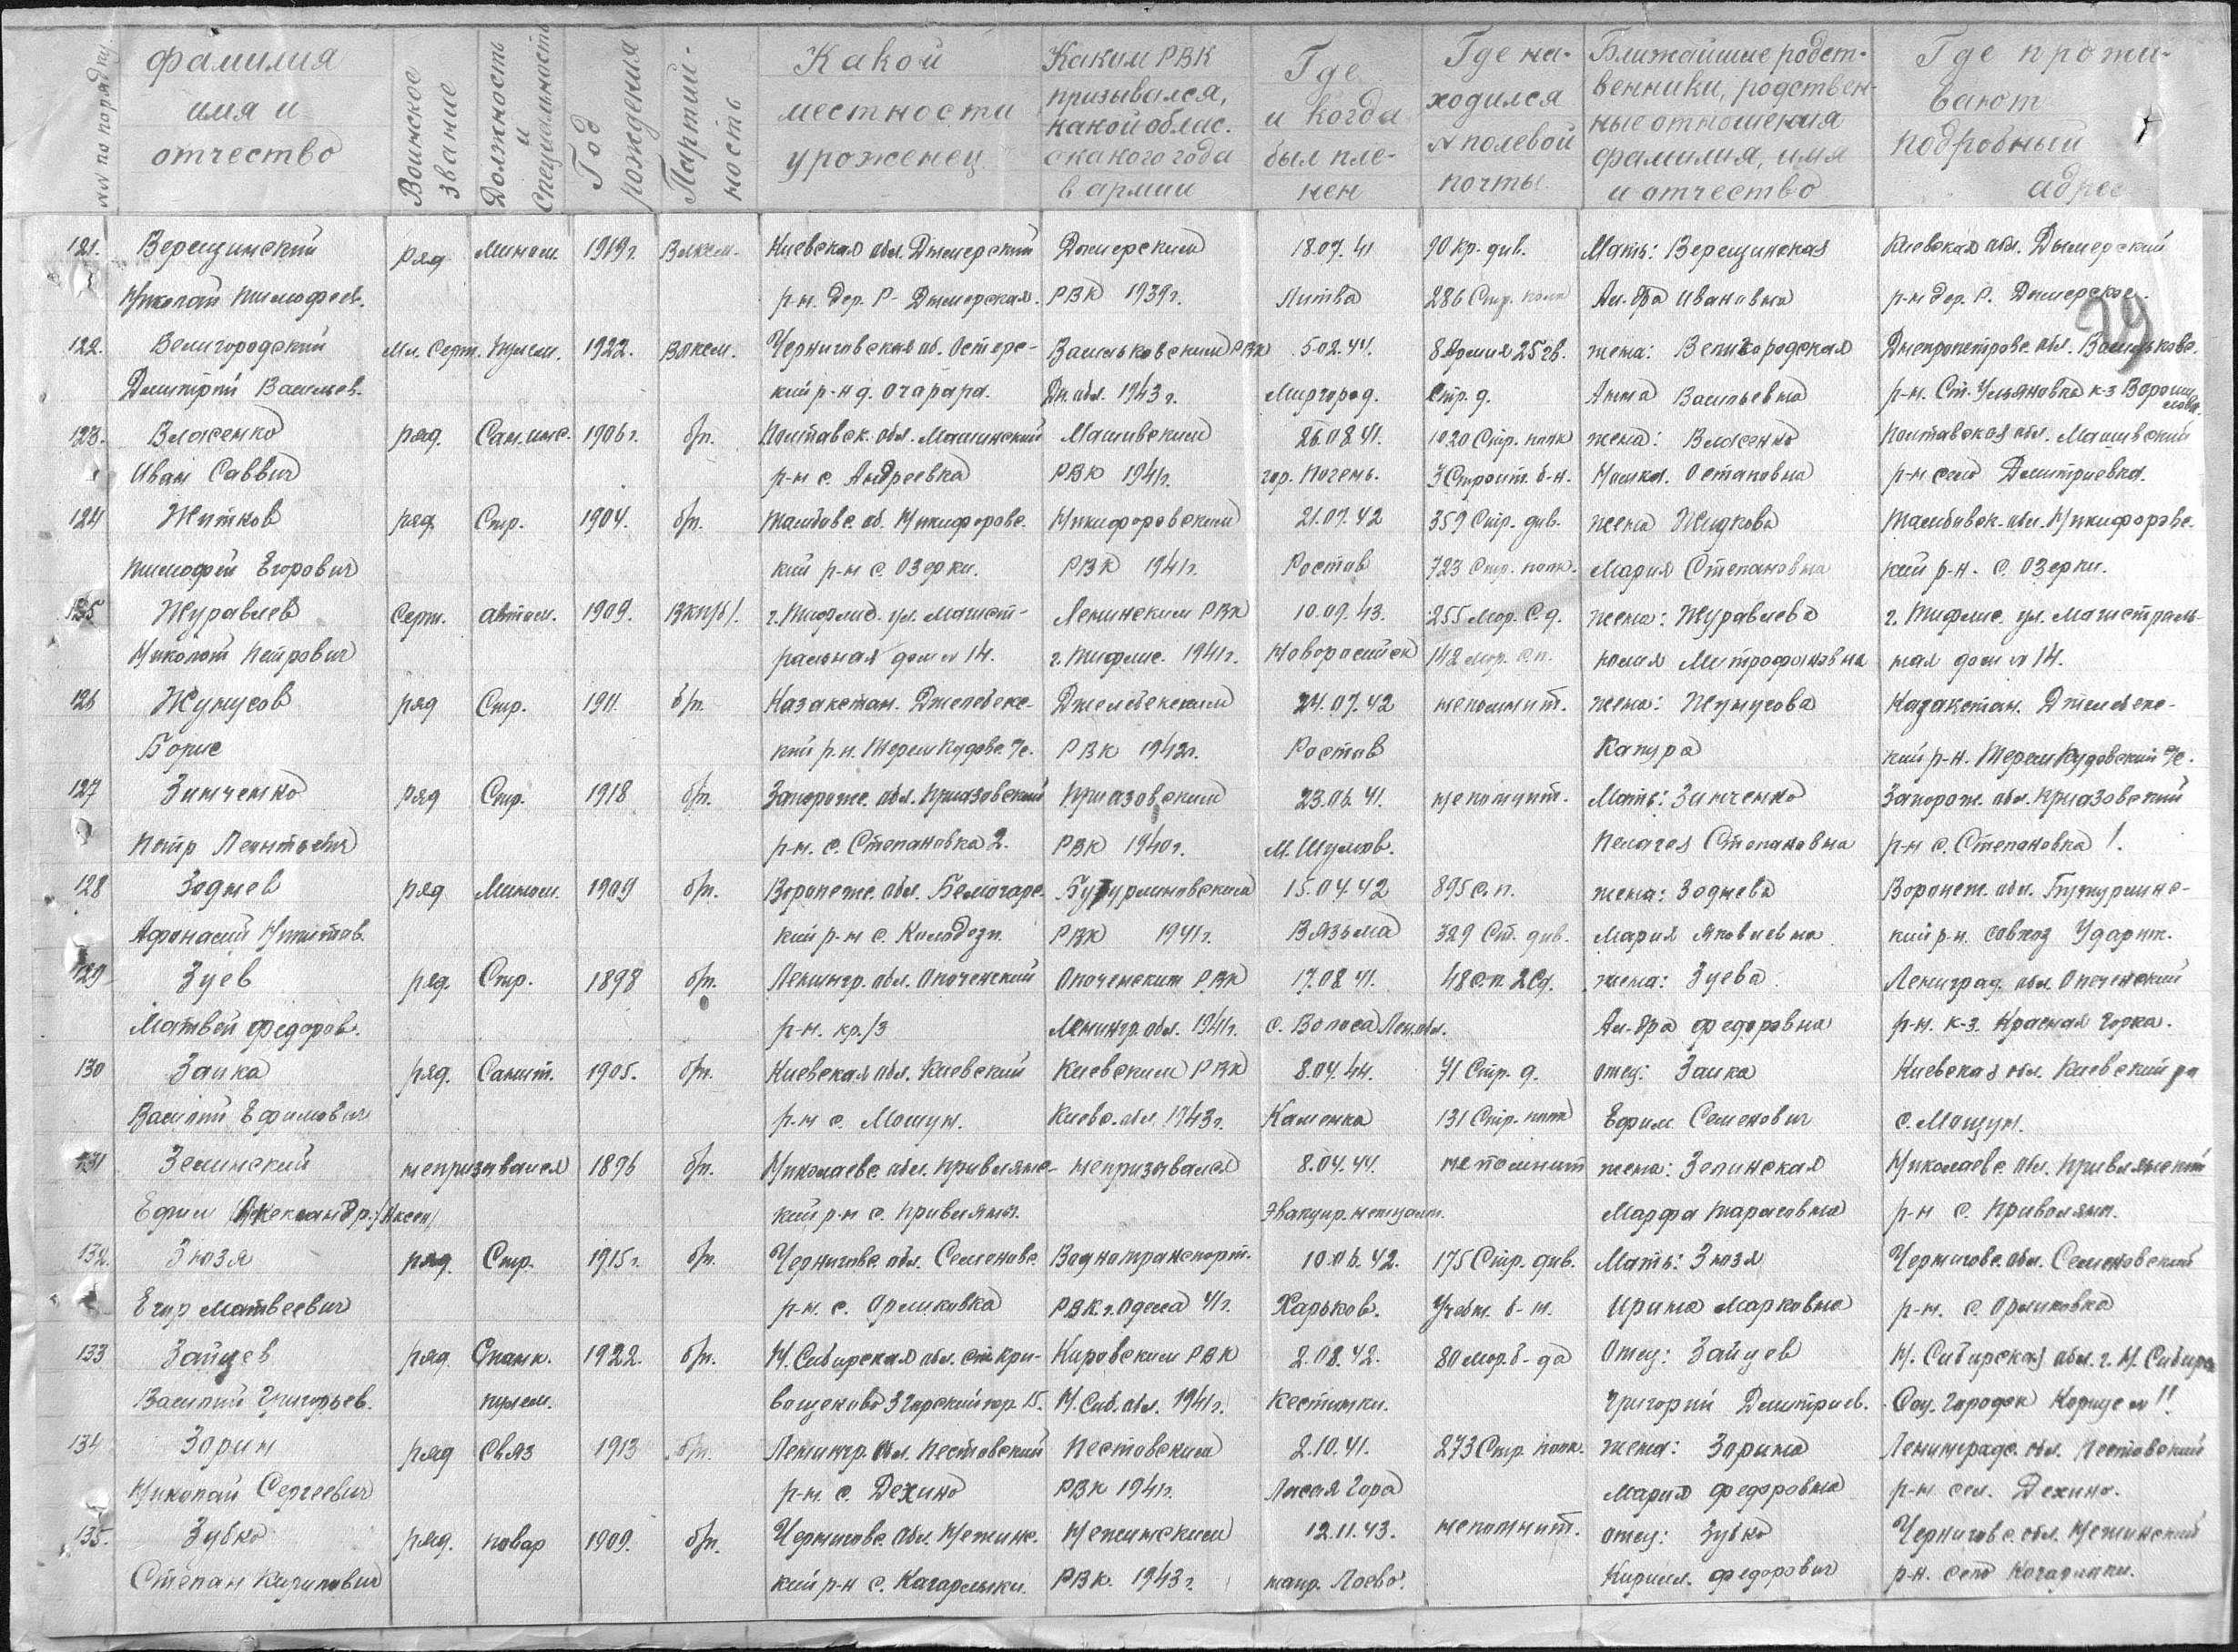 №№ по порядку | фамилия имя и отчество | Воинское звание | Должность и специальность | Год рождения | Партийность | Какой местности уроженец | Каким РВК призывался, какой облас. с какого года в армии | Где и когда был пленен | Где находился № полевой почты | Ближайшие родственники, родственные отношения фамилия, имя и отчество | Где проживают подробный адрес
29
121. Верещинский | ряд | Мином. | 1919г. | Влксм. | Киевская обл. Дымерский | Дымерским | 18.07.41 | 90 кр. див. | Мать: Верещинская | Киевская обл. Дымерский
Николай Тимофеев. | р-н. дер. Р- Дымерская. | РВК 1939г. | Литва | 286 Стр. полк | Ал-дра Ивановна | р-н дер. Р. Дымерское.
122. Велигородский | Мл. Серж. | Пулем. | 1922. | Влксм. | Черниговская об. Остерс- | Васильковским РВК | 5.02.44. | 8 Армия 25 гв. | жена: Велигородская | Днепропетровс. обл. Васильковс.
Дмитрий Васильев. | кий р-н д. | Дн. обл. 1943г. | Миргород. | Стр. д. | Анна Васильевна | р-н. Ст. Ульяновка к-з Ворошилова.
123. Власенко | ряд. | Сан. инс. | 1906г. | б/п. | Полтавск. обл. Машинский | Машивским | 26.08.41. | 1020 Стр. полк | жена: Власенко | Полтавская обл. Машивский
Иван Саввич | р-н с. Андреевка | РВК 1941г. | гор. Почепь. | 3 Строит. б-н. | Остаповна | р-н село Дмитриевка.
124 Житков | ряд. | Стр. | 1904. | б/п. | Тамбовс. об. Никифоровс. | Никифоровским | 21.07.42 | 359 Стр. див. | жена Жидкова | Тамбовск. обл. Никифоровс.
Тимофей Егорович | кий р-н с. Озерки. | РВК 1941г. | Ростов | 723 Стр. полк. | Мария Степановна | кий р-н. с. Озерки.
125 Журавлев | Серж. | Автом. | 1909. | ВКП/б/. | г. Тифлис. ул. Магист- | Ленинским РВК | 10.09.43. | 255 Мор. С.д. | жена: Журавлева | г. Тифлис. ул. Магистраль-
Николай Петрович | ральная дом № 14. | г. Тифлис. 1941г. | Новоросийск | 142 мор. с.п. | Митрофановна | ная дом № 14.
126 Жунусов | ряд | Стр. | 1911. | б/п. | Казакстан. Джелебекс- | Джелебекским | 24.07.42 | непомнит. | жена: Жунусова | Казакстан. Джелебекс-
Борис | кий р.н. Теремкудовс. | РВК 1942г. | Ростов | Капура | кий р-н. Теремкудовский
127 Зинченко | ряд | Стр. | 1918 | б/п. | Запорож. обл. Приазовский | Приазовским | 23.06.41. | непомнит. | Мать: Зинченко | Запорож. обл. Приазовский
Петр Леонтьевич | р-н. с. Степановка 2. | РВК 1940г. | м. Шумов. | Пелагея Степановна | р-н с. Степановка 1.
128 Заднев | ряд | Мином. | 1909 | б/п. | Воронеж. обл. | Бутурлиновским | 15.04.42 | 895 с.п. | жена: Заднева | Воронеж. обл. Бутурлинс-
Афонасий Никитов. | кий р-н с. Колодези. | РВК 1941г. | Вязьма | 329 Ст. див. | Мария Яковлевна | кий р.н. совхоз Ударник.
129 Зуев | ряд. | Стр. | 1898 | б/п. | Ленингр. обл. Опоченский | Опоченским РВК | 17.08.41. | 48 с.п. 2 Сд. | жена: Зуева | Лениград. обл. Опоченский
Матвей Федоров. | р-н. кр./з | Ленингр. обл. 1941г. | с. Волоса Лен. обл. | Ал-дра Федоровна | р-н. к-з. Красная Горка.
130 Заика | ряд. | Санит. | 1905. | б/п. | Киевская обл. Киевский | Киевским РВК | 8.04.44. | 71 Стр. д. | отец: Заика | Киевская обл. Киевский ра
Василий Ефимович | р-н с. Мощун. | Киевс. обл. 1943г. | Каменка | 131 Стр. полк | Ефим Семенович | с. Мощун.
131 Зелинский | непризывался | 1896 | б/п. | Николаевс. обл. Привлянс- | непризывался | 8.04.44. | непомнит | жена: Зелинская | Николаевс. обл.
Ефим /Александр./ | кий р-н с. | Эвакуир. немцами. | Марфа Тарасовна | р-н с.
132. Зюзя | ряд. | Стр. | 1915г. | б/п. | Черниговс. обл. Семеновс. | Воднотранспорт. | 10.06.42. | 175 Стр. див. | Мать: Зюзя | Черниговс. обл. Семеновский
Егор Матвеевич | р-н. с. Орликовка | РВК г. Одесса 41г. | Харьков. | Учебн. б-н. | Ирина Марковна | р-н. с. Орликовка
133 Зайцев | ряд | Станк. | 1922. | б/п. | Н. Сибирская обл. ст. Кри- | Кировским РВК | 2.08.42. | 80 мор. б-да | Отец: Зайцев | Н. Сибирская обл. г. Н. Сибирск
Василий Григорьев. | пулем. | вощеково | Н. Сиб. обл. 1941г. | Кестинки. | Григорий Дмитриев. | Соц. Городок Корпус № 11.
134 Зорин | ряд | связ | 1913 | б/п. | Ленингр. обл. Пестовский | Пестовским | 2.10.41. | 273 Стр. полк. | жена: Зорина | Ленинградс. обл. Пестовский
Николай Сергеевич | р-н. с. Дехино | РВК 1941г. | Лысая Гора | Мария Федоровна | р-н. сел. Дехино.
135. Зубко | ряд. | повар | 1909. | б/п. | Черниговс. обл. Нежинс. | Нежинским | 12.11.43. | непомнит. | отец: Зубко | Черниговс. обл. Нежинский
Степан Кирилович | кий р-н с. Кагарлыки. | РВК. 1943г. | Лоево. | Кирилл. Федорович | р-н. село